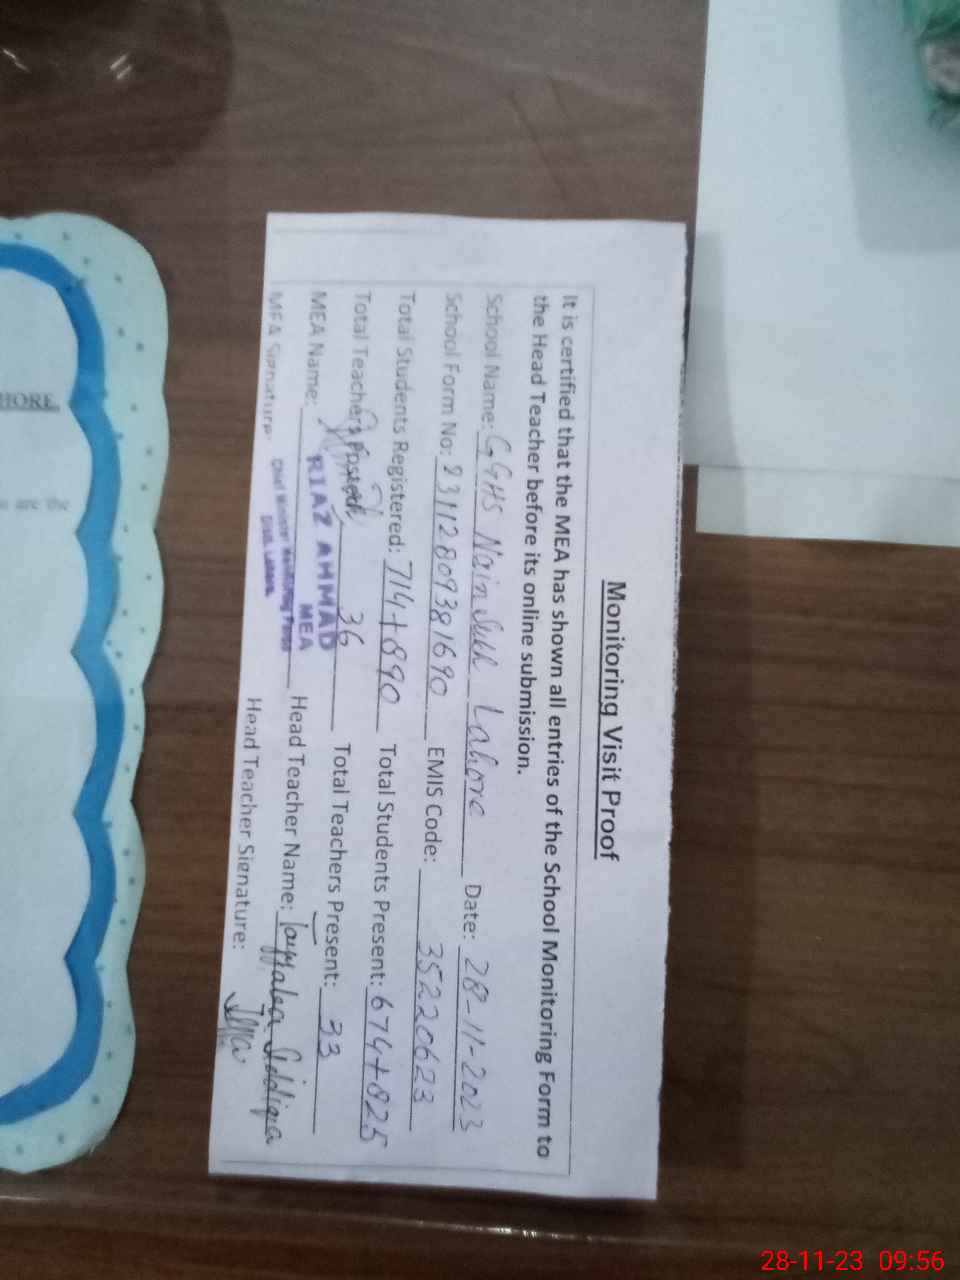 Monitoring Visit Proof
It is certified that the MEA has shown all entries of the School Monitoring Form to
the Head Teacher before its online submission.
School Name: GGHS Nain Sukh Lahore Date: 28-11-2023
School Form No: 23112809381690 EMIS Code: 35220623
Total Students Registered: 714+890 Total Students Present: 674+825
Total Teachers Posted: 36 Total Teachers Present: 33
MEA Name: RIAZ AHMAD Head Teacher Name: Siddiqa
MEA
Chief Minister Monitoring Force
Distt. Lahore.
MEA Signature: Head Teacher Signature:
HORE.
are the
28-11-23 09:56